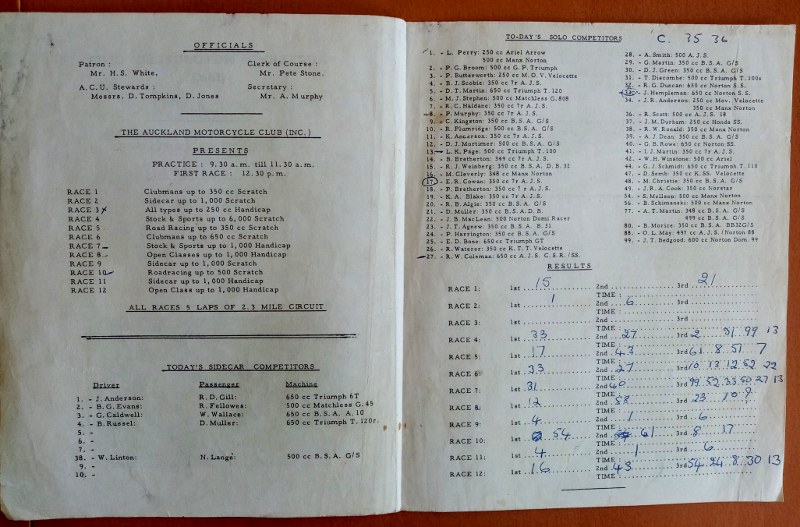 OFFICIALS
Patron :
Mr. H.S. White,
Clerk of Course :
Mr. Pete Stone.
A.C.U. Stewards :
Messrs. D. Tompkins, D. Jones
Secretary :
Mr. A. Murphy
THE AUCKLAND MOTORCYCLE CLUB (INC.)
PRESENTS
PRACTICE : 9.30 a.m. till 11.30 a.m.
FIRST RACE : 12.30 p.m.
RACE 1 Clubmans up to 350 cc Scratch
RACE 2 Sidecar up to 1,000 Scratch
RACE 3 All types up to 250 cc Handicap
RACE 4 Stock & Sports up to 6,000 Scratch
RACE 5 Road Racing up to 350 cc Scratch
RACE 6 Clubmans up to 650 cc Scratch
RACE 7 Stock & Sports up to 1,000 Handicap
RACE 8 Open Classes up to 1,000 Handicap
RACE 9 Sidecar up to 1,000 Scratch
RACE 10 Roadracing up to 500 Scratch
RACE 11 Sidecar up to 1,000 Handicap
RACE 12 Open Class up to 1,000 Handicap
ALL RACES 5 LAPS OF 2.3 MILE CIRCUIT
TODAY'S SIDECAR COMPETITORS
Driver Passenger Machine
1. - J. Anderson: R.D. Gill: 660 cc Triumph 6T
2. - B.G. Evans: R. Fellowes: 500 cc Matchless G.45
3. - G. Caldwell: W. Wallace: 650 cc B.S.A. A.10
4. - B. Russel: D. Muller: 650 cc Triumph T.120r.
5. -
6. -
7. -
38. - W. Linton: N. Lange: 500 cc B.S.A. G/S
9. -
10. -
TO-DAY'S SOLO COMPETITORS C. 35 36
1. - L. Perry: 250 cc Ariel Arrow
500 cc Manx Norton
2. - P.G. Broom: 500 cc G.P. Triumph
3. - P. Butterworth: 250 cc M.O.V. Velocette
4. - B.J. Scobie: 350 cc 7r A.J.S.
5. - D.T. Martin: 650 cc Triumph T.120
6. - M.J. Stephen: 500 cc Matchless G.80S
7. - R.C. Haldane: 350 cc 7r A.J.S.
8. - P. Murphy: 350 cc 7r A.J.S.
9. - C. Kingston: 350 cc B.S.A. G/S
10. - R. Plumridge: 500 cc Manx Norton
11. - K. Anderson: 350 cc 7r A.J.S.
12. - D.J. Mortimer: 500 cc B.S.A. G/S
13. - L.K. Page: 500 cc Triumph T.100
14. - B. Bretherton: 349 cc 7r A.J.S.
15. - R.J. Weinberg: 350 cc B.S.A. D.B. 32
16. - M. Cleverly: 348 cc Manx Norton
17. - E.R. Cowan: 350 cc 7r A.J.S.
18. - P. Bretherton: 350 cc 7 r A.J.S.
19. - K.A. Blake: 350 cc 7r A.J.S.
20. - R.B. Algie: 500 cc B.S.A. G/S
21. - D. Muller: 350 cc B.S.A. D.B.
22. - J.B. MacLean: 500 Norton Domi Racer
23. - J.T. Agnew: 350 cc B.S.A. B. 31
24. - P. Herrington: 350 cc B.S.A. G/S
25. - E.D. Bone: 650 cc Triumph GT
26. - R. Waterer: 350 cc K.T.T. Velocette
27. - R.W. Coleman: 650 cc A.J.S. C.S.R./SS.
28. - A. Smith: 500 A.J.S.
29. - G. Martin: 350 cc B.S.A. G/S
30. - D.J. Green: 350 cc B.S.A. G/S
31. - T. Discombe: 500 cc Triumph T.100s
32. - R.G. Duncan: 650 cc Norton S.S.
33. - J. Hemplemas: 650 cc Norton S.S.
34. - J.R. Anderson: 250 cc Mov. Velocette
350 cc Manx Norton
36. - R. Scott: 500 cc A.J.S. 18
37. - J.M. Durham: 250 cc Honda SS.
38. - R.W. Ronald: 350 cc Manx Norton
39. - A.J. Dean: 350 cc B.S.A. G/S
40. - G.B. Rowe: 650 cc Norton SS.
41. - I.J. Martin: 350 cc 7r A.J.S.
42. - W.H. Winstone: 500 cc Ariel
44. - G.J. Schmidt: 650 cc Triumph T.110
47. - D. Semb: 350 cc K.SS. Velocette
48. - M. Christie: 350 cc B.S.A. G/S
49. - J.R.A. Cook: 350 cc Norstar
54. - E. McIleon: 500 cc Manx Norton
56. - B. Schimanski: 500 cc Manx Norton
77. - A.T. Martin: 348 cc B.S.A. G/S
499 cc B.S.A. G/S
80. - B. Morice: 350 cc B.S.A. BB32G/S
88. - O.L. May: 497 cc A.J.S./Norton 88
99. - J.T. Bedgood: 600 cc Norton Dom. 99
RESULTS
RACE 1: 1st 15 2nd 3rd 21
TIME :
RACE 2: 1st 1 2nd 6 3rd
TIME :
RACE 3: 1st 2nd 3rd
TIME :
RACE 4: 1st 33 2nd 27 3rd 2 31 99 13
TIME :
RACE 5: 1st 17 2nd 43 3rd 61 8 51 7
TIME :
RACE 6: 1st 33 2nd 27 3rd 10 13 12 52 22
TIME :
RACE 7: 1st 31 2nd 40 3rd 99 52 33 50 27 13
TIME :
RACE 8: 1st 12 2nd 58 3rd 23 10
TIME :
RACE 9: 1st 4 2nd 1 3rd 6
TIME :
RACE 10: 1st 54 2nd 61 3rd 8 17
TIME :
RACE 11: 1st 4 2nd 1 3rd 6
TIME :
RACE 12: 1st 16 2nd 43 3rd 54 34 8 30 13
TIME :